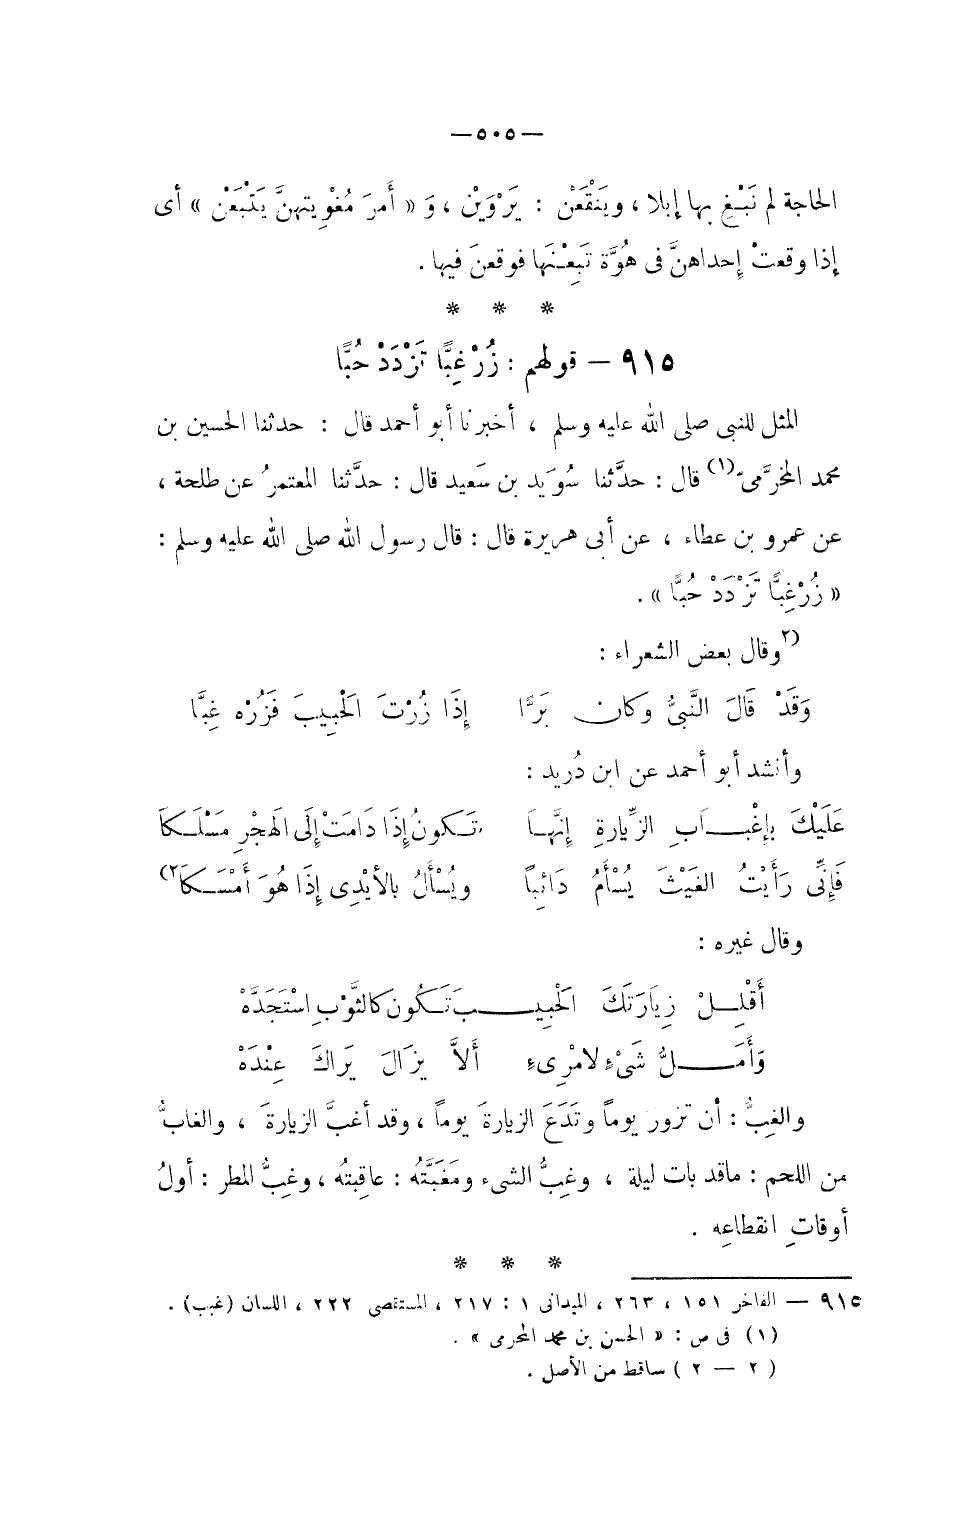 —٥٠٥—
الحاجة لم نَبْغِ بها إبلا ، وينَقْعَنْ : يَرْوَيْن ، وَ « أَمرَ مُغْويتهنَّ يَتْبَعَنْ » أى
إذا وقعتْ إحداهنَّ فى هُوَّة تَبِعْنَها فوقعنَ فيها .
* * *
٩١٥ — قولهم : زُرْ غِبًّا تَزْدَدْ حُبًّا
المثل للنبى صلى الله عليه وسلم ، أخبرنا أبو أحمد قال : حدثنا الحسين بن
محمد المخرَّمىّ(١) قال : حدَّثنا سُوَيد بن سَعيد قال : حدَّثنا المعتمرُ عن طلحة ،
عن عمرو بن عطاء ، عن أبى هريرة قال : قال رسول الله صلى الله عليه وسلم :
« زُرْغِبًّا تَزْدَدْ حُبًّا » .
٢)وقال بعض الشعراء :
وَقَدْ قَالَ النَّبىُّ وكان بَرًّا إِذَا زُرْتَ الحَبِيبَ فَزُرْه غِبًّا
وأنشد أبو أحمد عن ابن دُريد :
عَلَيْكَ بإِغْبَـابِ الزِّيارةِ إِنَّهَا تَكونُ إِذَا دَامَتْ إِلَى الهَجْرِ مَسْلَكَا
فَإِنِّى رَأَيْتُ الغَيْثَ يُسْأَمُ دَائِباً ويُسْأَلُ بالأيْدِى إِذَا هُوَ أَمْسَكَا٢)
وقال غيره :
أَقْلِـلْ زِيَارَتَكَ الحَبِيـبَ تَكُونَ كالثَّوْبِ اسْتَجَدَّهْ
وَأَمَـلُّ شَىْءٍ لامْرِىءٍ أَلاَّ يزَالَ يَراكَ عِنْدَهْ
والغِبُّ : أن تزور يوماً وتَدَعَ الزيارةَ يوماً ، وقد أغبَّ الزيارةَ ، والغابُّ
من اللحم : ماقد بات ليلة ، وغبُّ الشىء ومَغَبَّتُه : عاقبتُه ، وغبُّ المطر : أولُ
أوقاتِ انقطاعِه .
* * *
٩١٥ — الفاخر ١٥١ ، ٢٦٣ ، الميدانى ١ : ٢١٧ ، المستقصى ٢٢٢ ، اللسان (غبب) .
(١) فى ص : « الحسن بن محمد المخرمى » .
(٢ — ٢) ساقط من الأصل .